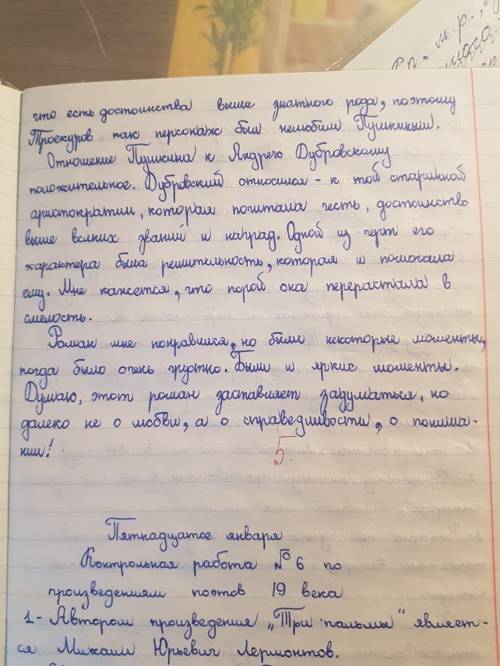 что есть достоинства выше знатного рода, поэтому
Троекуров как персонаж был нелюбим Пушкиным.
Отношение Пушкина к Андрею Дубровскому
положительное. Дубровский относился - к той старинной
аристократии, которая почитала честь, достоинство
выше всяких званий и наград. Одной из черт его
характера была решительность, которая и помогала
ему. Мне кажется, что порой она перерастала в
смелость.
Роман мне понравился, но были некоторые моменты,
когда было очень грустно. Были и яркие моменты.
Думаю, этот роман заставляет задуматься, но
далеко не о любви, а о справедливости, о понима-
нии!
5.
Пятнадцатое января
Контрольная работа № 6 по
произведениям поэтов 19 века
1- Автором произведения „Три пальмы" являет-
ся Михаил Юрьевич Лермонтов.